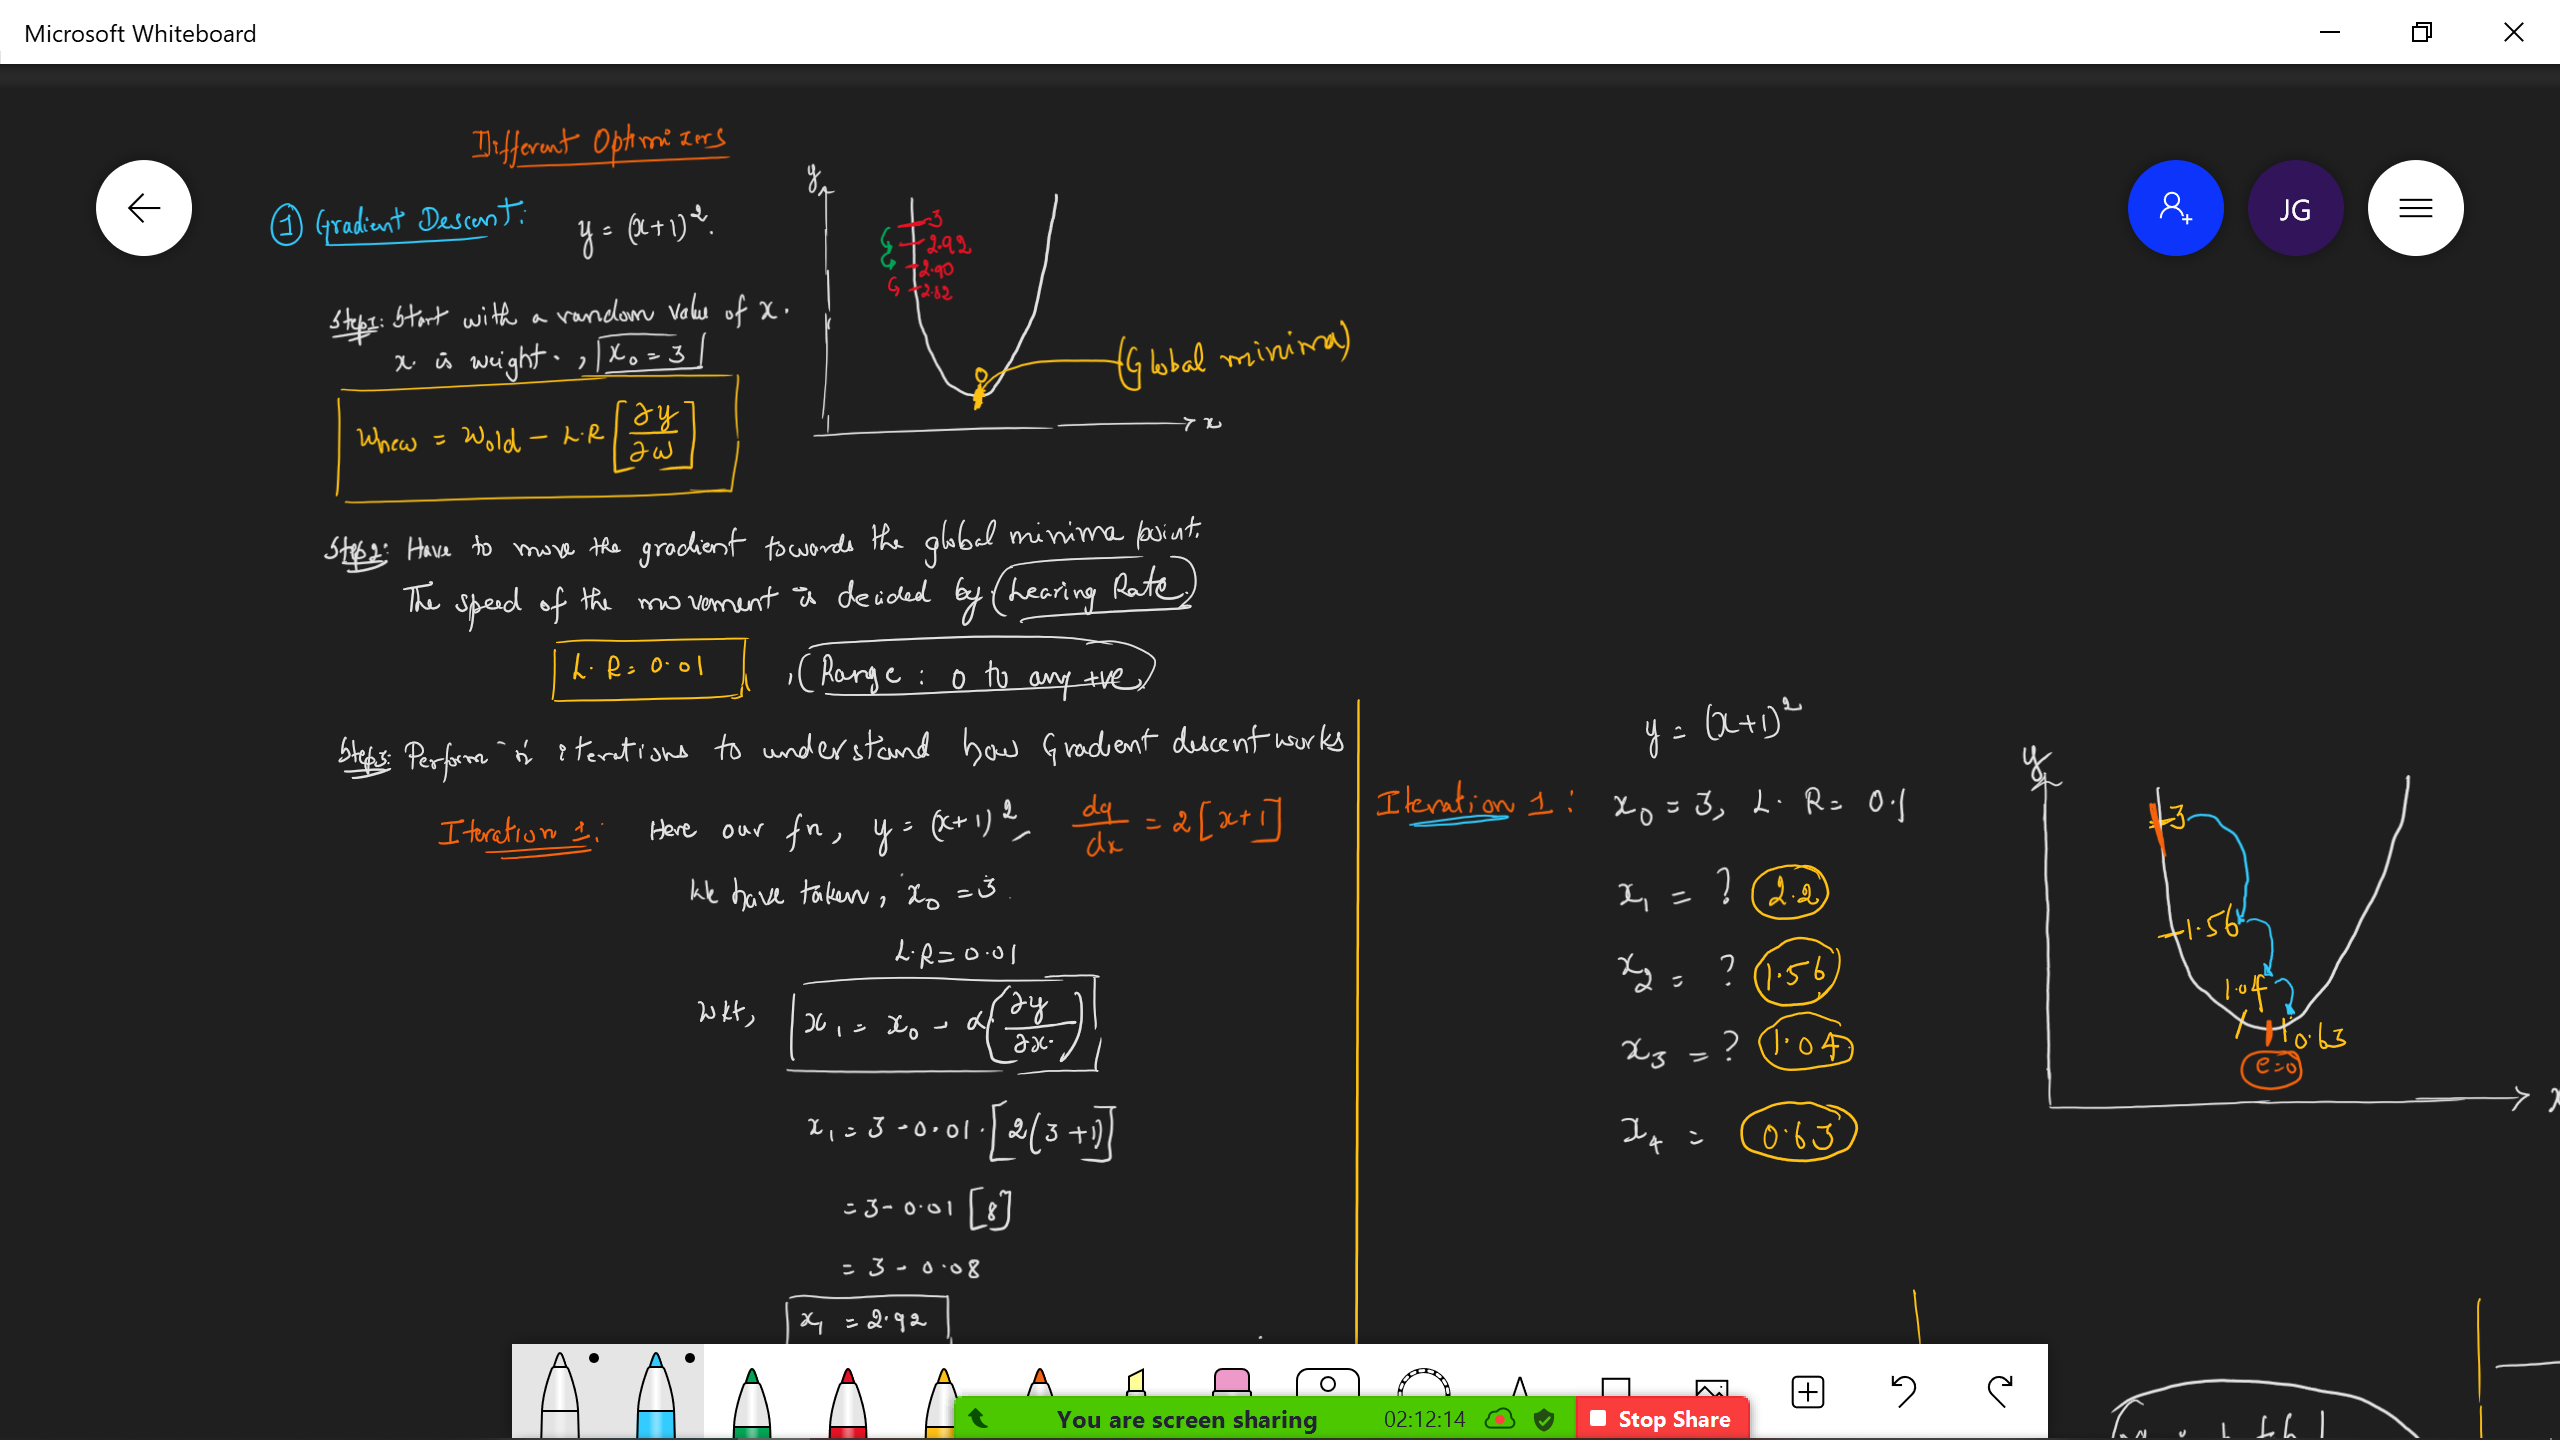 Microsoft Whiteboard
Different Optimizers
JG
① Gradient Descent:
y = (x+1)².
y
3
2.92
2.90
2.82
(Global minima)
x
Step1: Start with a random value of x.
x is weight. , x₀ = 3
Wnew = Wold - L.R [∂y/∂w]
Step2: Have to move the gradient towards the global minima point.
The speed of the movement is decided by (Learing Rate)
L.R = 0.01 , (Range: 0 to any +ve)
Step3: Perform 'n' iterations to understand how Gradient descent works
Iteration 1: Here our fn, y = (x+1)², dy/dx = 2[x+1]
We have taken, x₀ = 3.
L.R = 0.01
Wkt, x₁ = x₀ - α(∂y/∂x)
x₁ = 3 - 0.01 . [2(3+1)]
= 3 - 0.01 [8]
= 3 - 0.08
x₁ = 2.92
y = (x+1)²
Iteration 1: x₀ = 3, L.R = 0.1
x₁ = ? 2.2
x₂ = ? 1.56
x₃ = ? 1.04
x₄ = 0.63
y
3
1.56
1.04
0.63
e=0
x
You are screen sharing
02:12:14
Stop Share